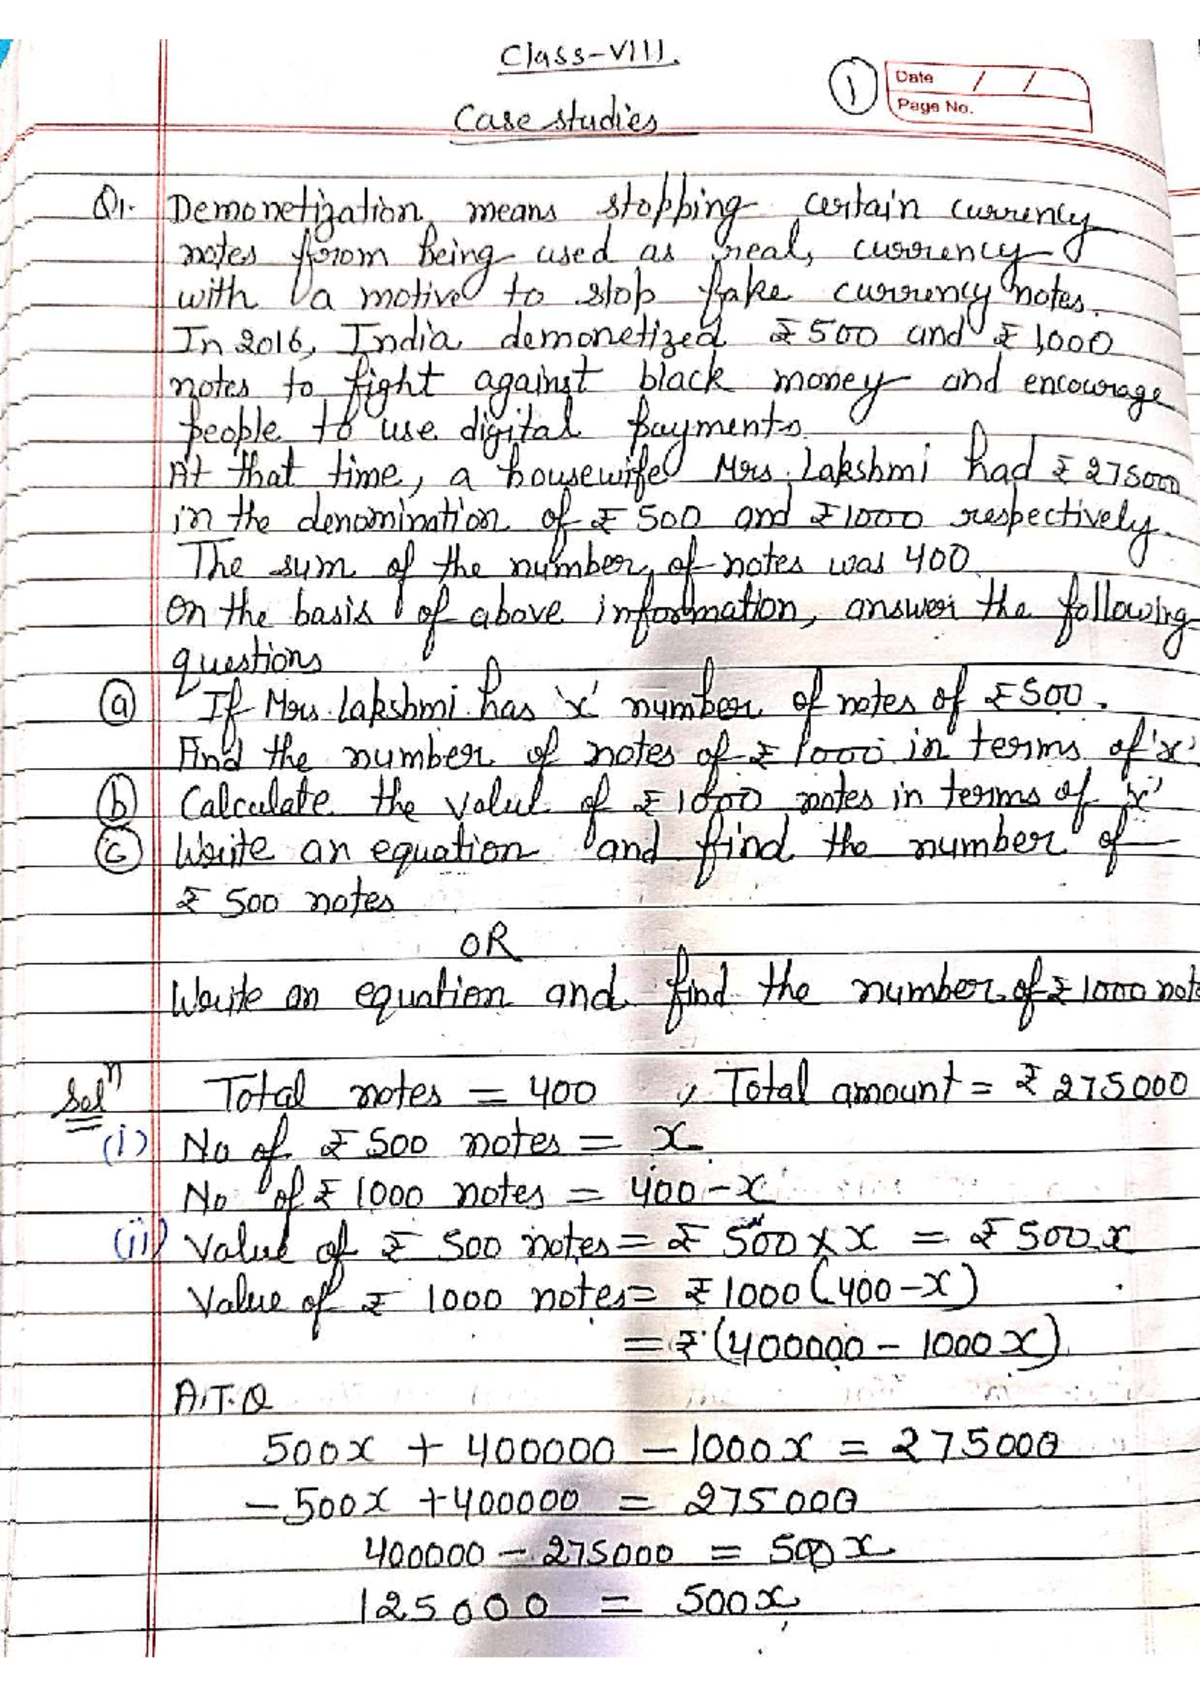 Class-VIII.
1
Date / /
Page No.
Case studies
Q1. Demonetization means stopping certain currency
notes from being used as real, currency
with a motive to stop fake currency notes.
In 2016, India demonetized ₹500 and ₹1,000
notes to fight against black money and encourage
people to use digital payments.
At that time, a housewife Mrs. Lakshmi had ₹275000
in the denomination of ₹500 and ₹1000 respectively.
The sum of the number of notes was 400.
On the basis of above information, answer the following
questions
(a) If Mrs. Lakshmi has 'x' number of notes of ₹500.
Find the number of notes of ₹1000 in terms of 'x'
(b) Calculate the value of ₹1000 notes in terms of 'x'
(c) Write an equation and find the number of
₹500 notes
OR
Write an equation and find the number of ₹1000 note
Solⁿ Total notes = 400 , Total amount = ₹275000
(i) No of ₹500 notes = x
No of ₹1000 notes = 400-x
(ii) Value of ₹500 notes = ₹500×x = ₹500x
Value of ₹1000 notes = ₹1000(400-x)
= ₹(400000-1000x)
A.T.Q
500x + 400000 - 1000x = 275000
-500x +400000 = 275000
400000 - 275000 = 500x
125000 = 500x